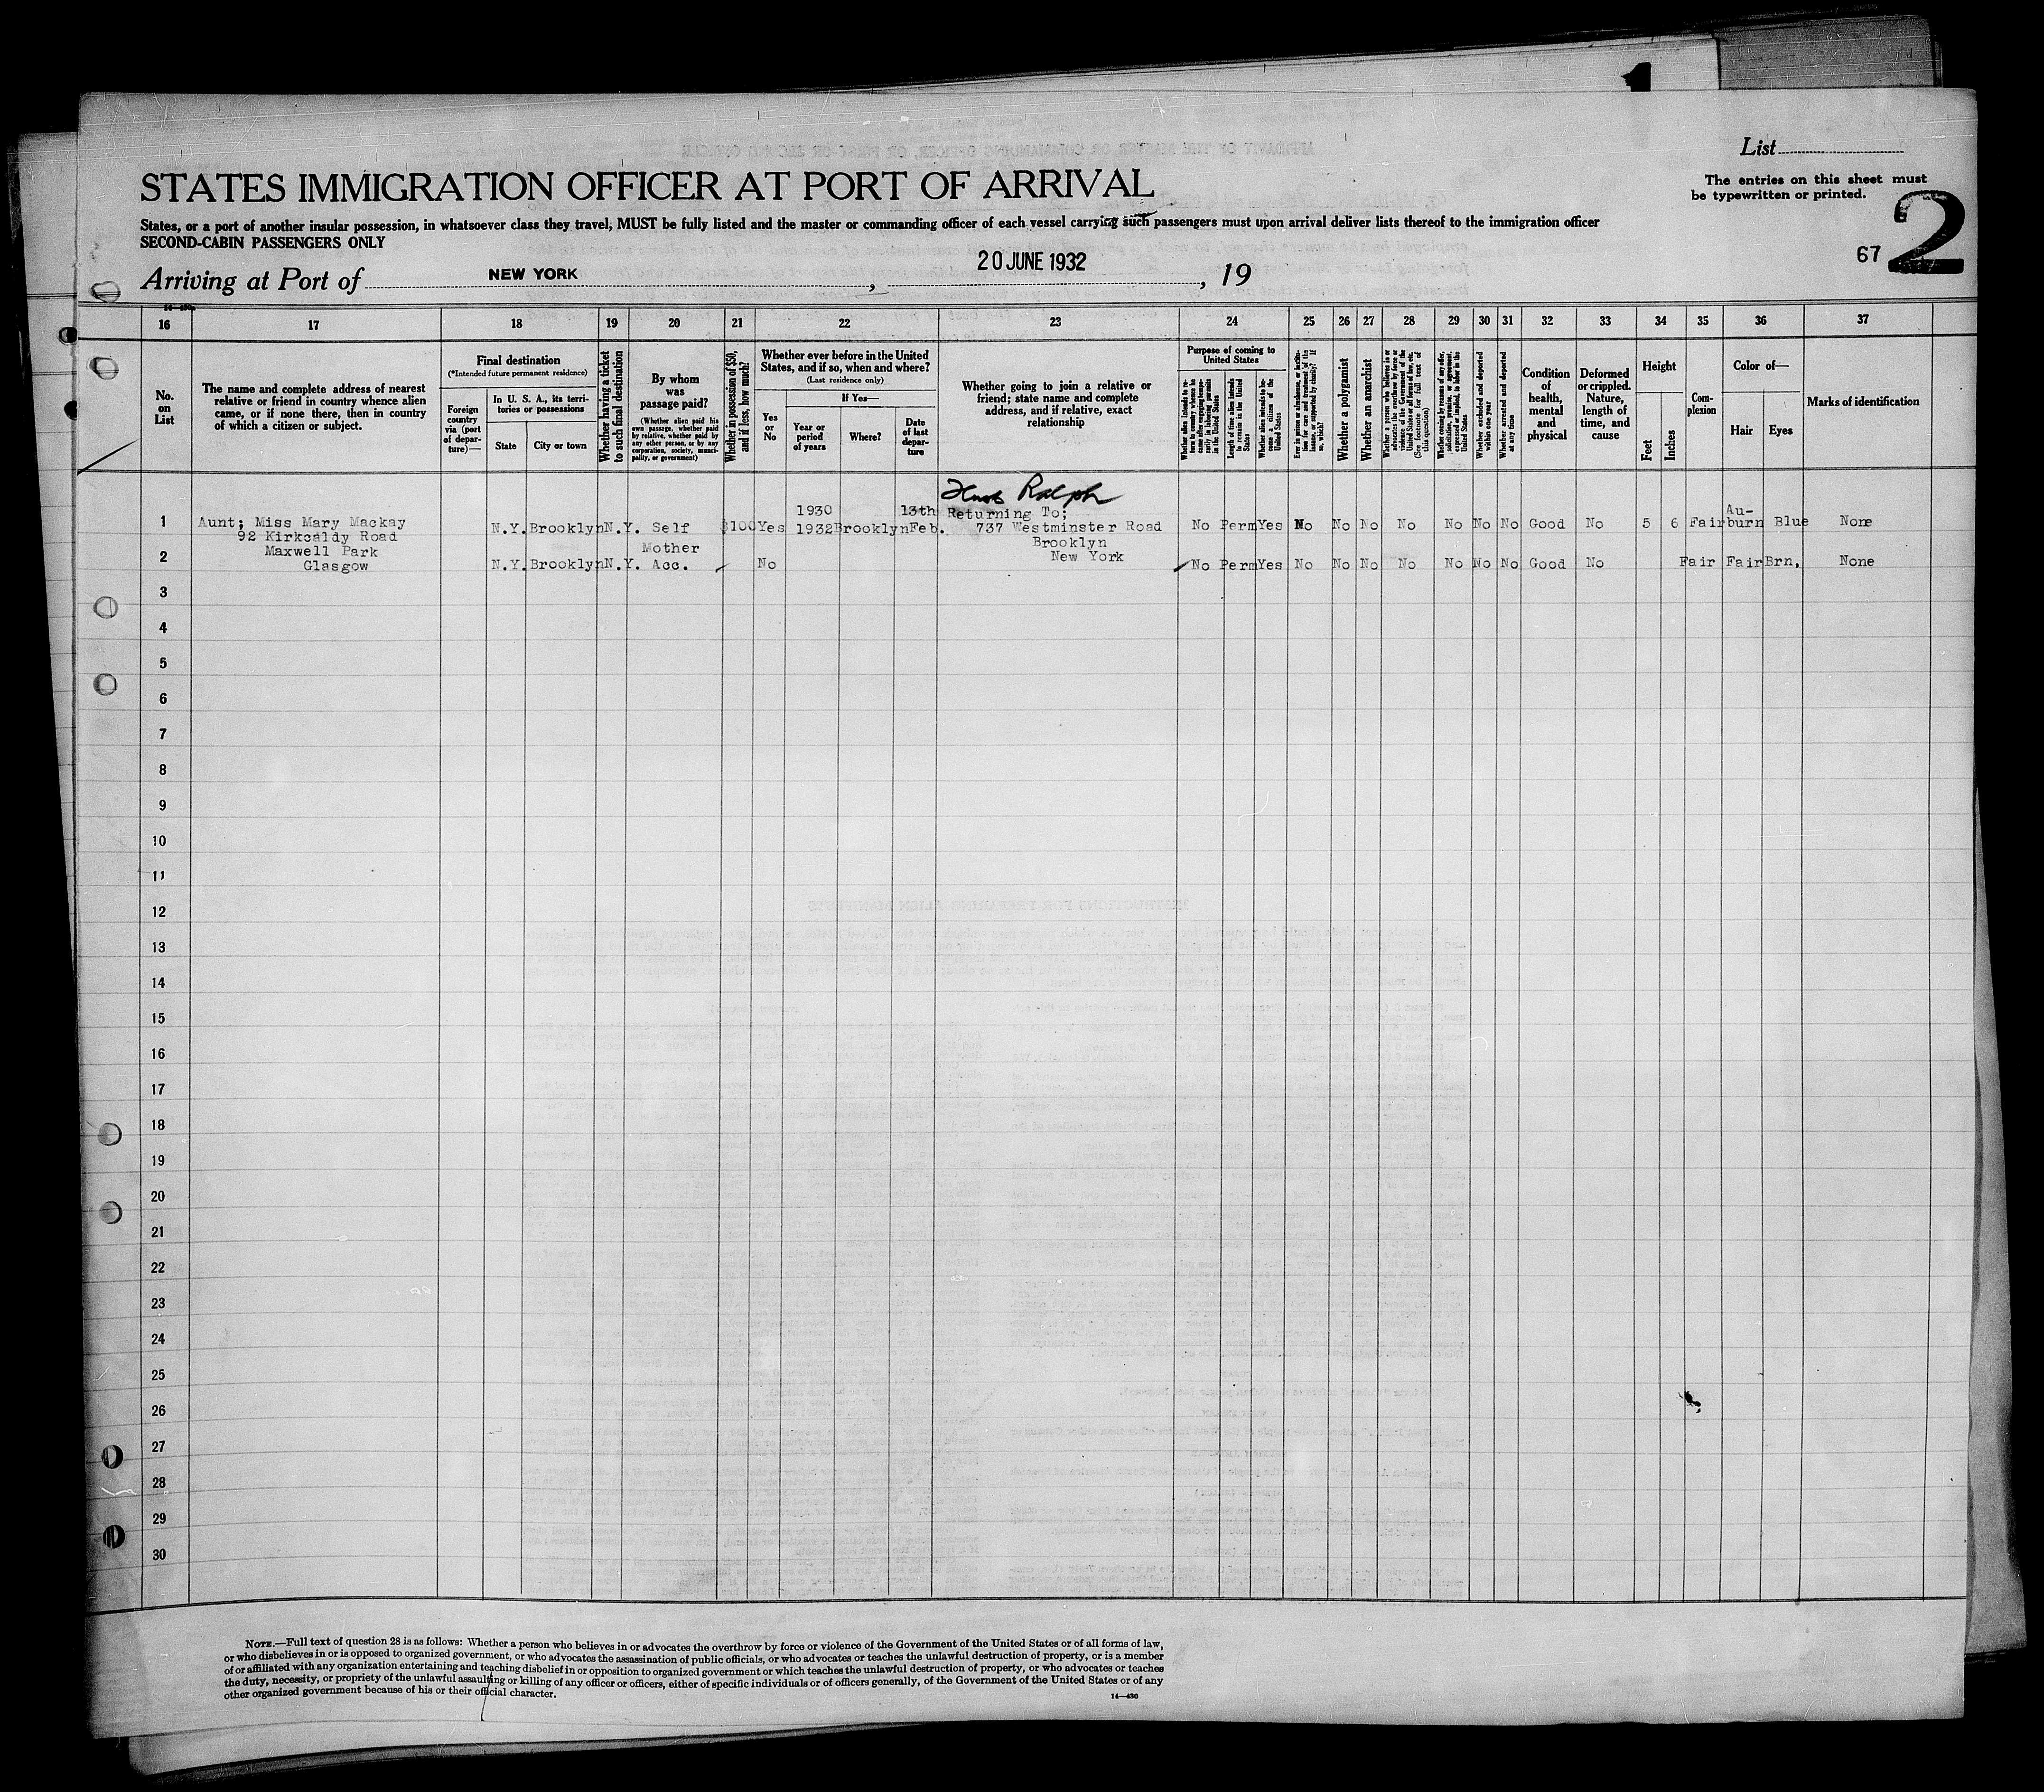 List
The entries on this sheet must
be typewritten or printed.
STATES IMMIGRATION OFFICER AT PORT OF ARRIVAL
2
States, or a port of another insular possession, in whatsoever class they travel, MUST be fully listed and the master or commanding officer of each vessel carrying such passengers must upon arrival deliver lists thereof to the immigration officer
SECOND-CABIN PASSENGERS ONLY
67
Arriving at Port of NEW YORK, 20 JUNE 1932, 19
16 17 18 19 20 21 22 23 24 25 26 27 28 29 30 31 32 33 34 35 36 37
No. on List
The name and complete address of nearest
relative or friend in country whence alien
came, or if none there, then in country
of which a citizen or subject.
Final destination
(*Intended future permanent residence)
Foreign country via (port of departure)—
In U. S. A., its territories or possessions
State
City or town
Whether having a ticket to such final destination
By whom was passage paid?
(Whether alien paid his own passage, whether paid by relative, whether paid by any other person, or by any corporation, society, municipality, or government)
Whether in possession of $50, and if less, how much?
Whether ever before in the United States, and if so, when and where?
(Last residence only)
Yes or No
If Yes—
Year or period of years
Where?
Date of last departure
Whether going to join a relative or
friend; state name and complete
address, and if relative, exact
relationship
Purpose of coming to United States
Length of time alien intends to remain in the United States
Whether alien intends to become a citizen of the United States
Whether a polygamist
Whether an anarchist
Whether excluded and deported within one year
Whether arrested and deported at any time
Condition of health, mental and physical
Deformed or crippled. Nature, length of time, and cause
Height
Feet
Inches
Complexion
Color of—
Hair
Eyes
Marks of identification
Ralph
1 Aunt; Miss Mary Mackay N.Y. Brooklyn N.Y. Self $100 Yes 1930 1932 Brooklyn 13th Feb. Returning To; 737 Westminster Road No Perm Yes No No No No No No No Good No 5 6 Fair Au-burn Blue None
92 Kirkcaldy Road
Brooklyn
Maxwell Park
New York
2 Glasgow N.Y. Brooklyn N.Y. Mother Acc. No No Perm Yes No No No No No No No Good No Fair Fair Brn, None
3
4
5
6
7
8
9
10
11
12
13
14
15
16
17
18
19
20
21
22
23
24
25
26
27
28
29
30
NOTE.—Full text of question 28 is as follows: Whether a person who believes in or advocates the overthrow by force or violence of the Government of the United States or of all forms of law,
or who disbelieves in or is opposed to organized government, or who advocates the assassination of public officials, or who advocates or teaches the unlawful destruction of property, or is a member
of or affiliated with any organization entertaining and teaching disbelief in or opposition to organized government or which teaches the unlawful destruction of property, or who advocates or teaches
the duty, necessity, or propriety of the unlawful assaulting or killing of any officer or officers, either of specific individuals or of officers generally, of the Government of the United States or of any
other organized government because of his or their official character.
14—430